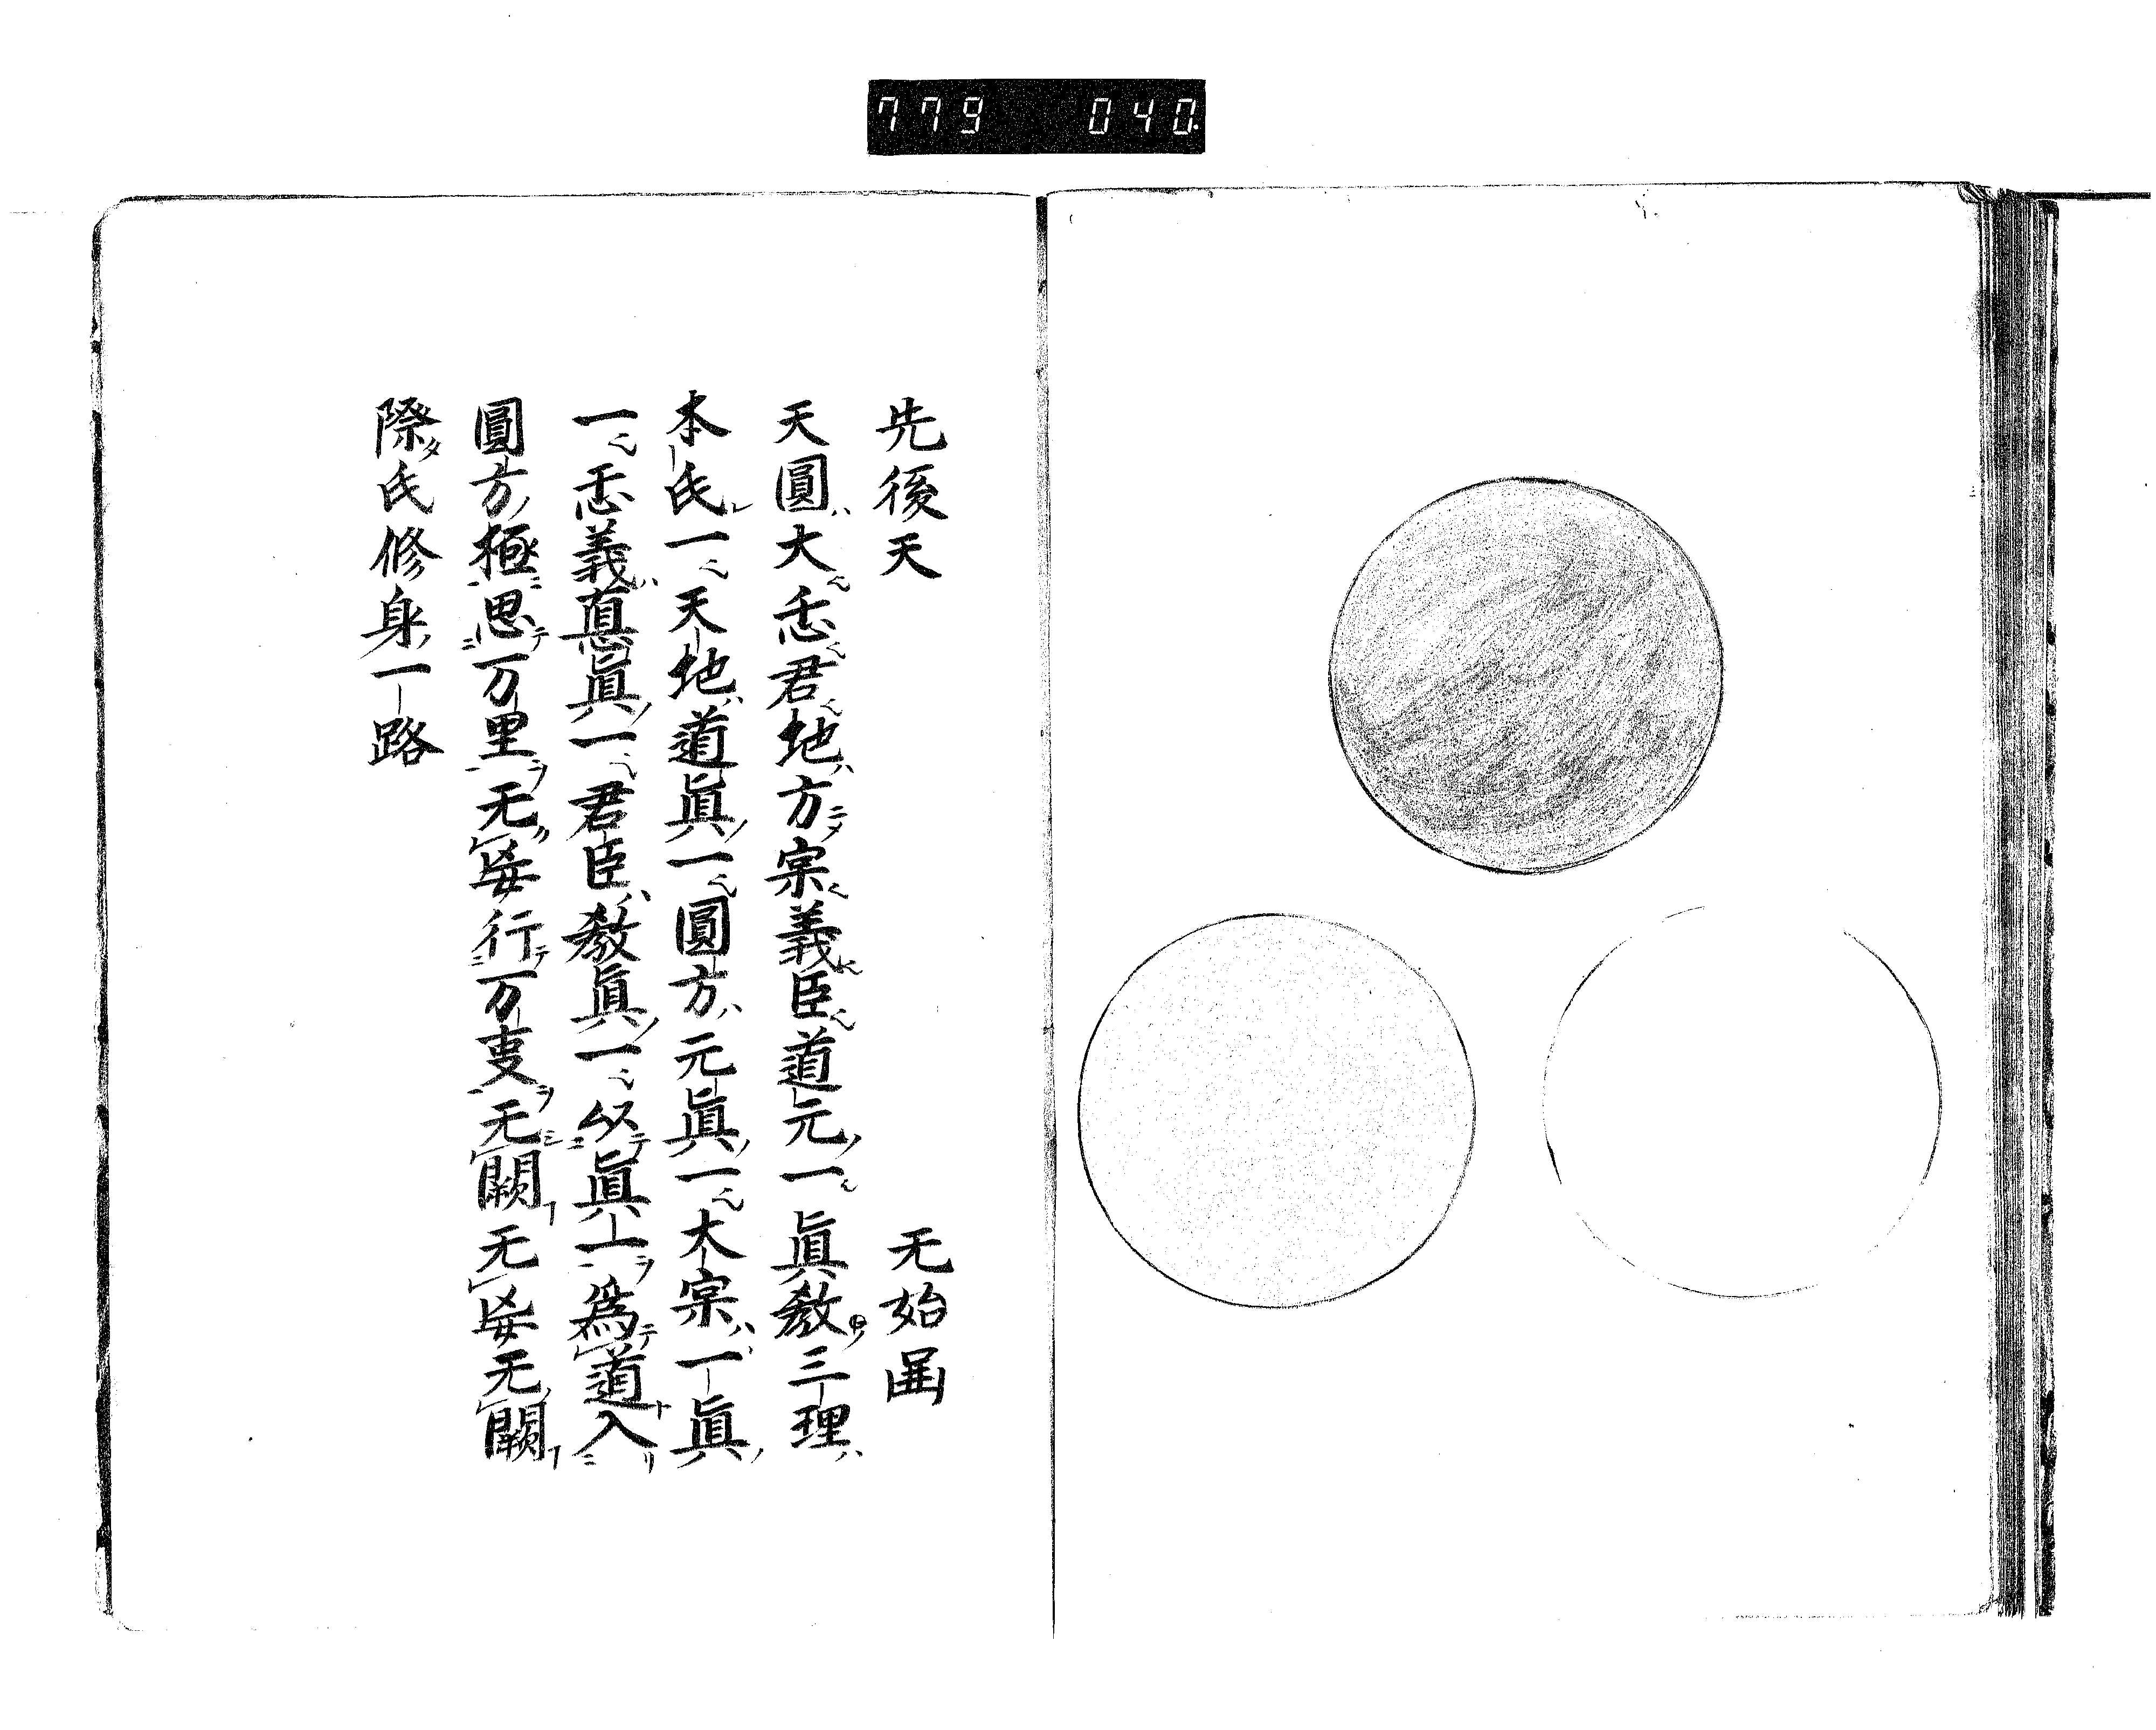 779 040
先後天 无始
天圓大君地方宗義臣道元一眞教三理
本氐一天地道眞一圓方元眞一大宗一眞
一義眞一君臣教眞一以眞一爲道入
圓方極思万里无行万叓无闕无无闕
際氐修身一路